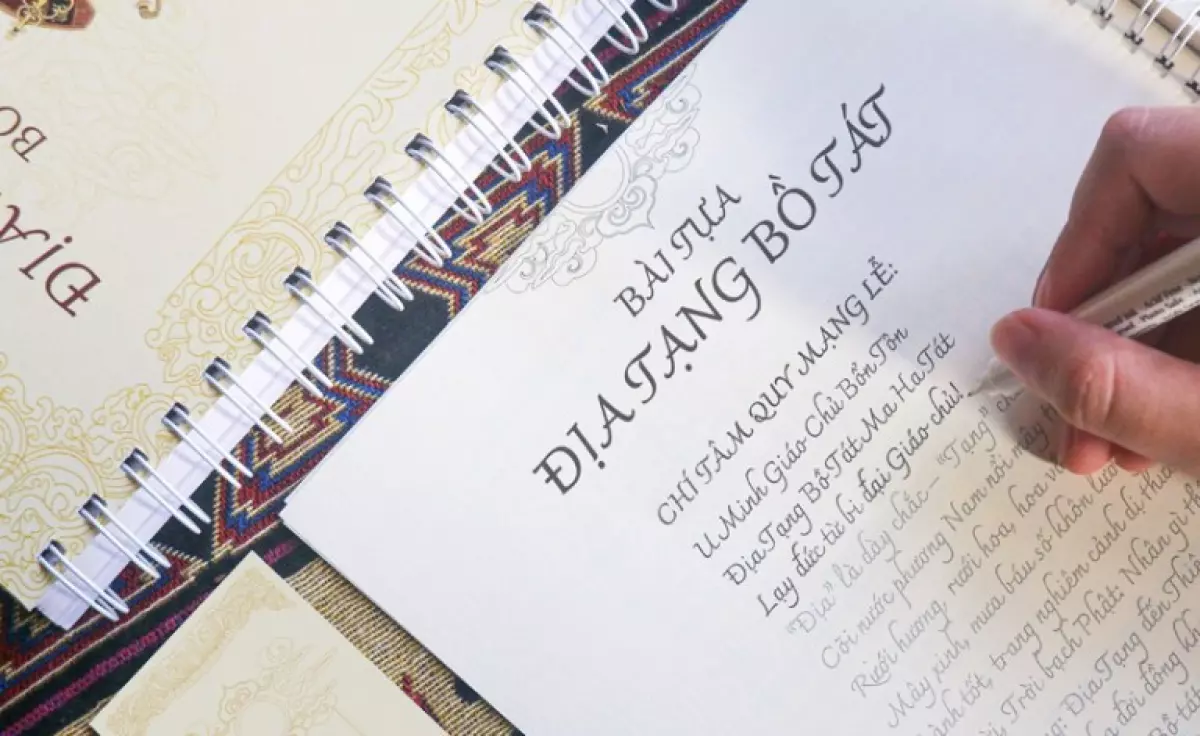 BỒ
ĐỊA
BÀI TỰA
ĐỊA TẠNG BỒ TÁT
CHÍ TÂM QUY MẠNG LỄ:
U Minh Giáo Chủ Bổn Tôn
Địa Tạng Bồ Tát Ma Ha Tát
Lạy đức từ bi đại Giáo chủ!
"Địa" là dày chắc – "Tạng"
Cõi nước phương Nam nổi mây
Rưới hương, rưới hoa, hoa
Mây xinh, mưa báu số không
lành tốt, trang nghiêm cảnh dị
Trời bạch Phật: Nhân gì
Địa Tạng đến
đời đồng
Bồ-tát